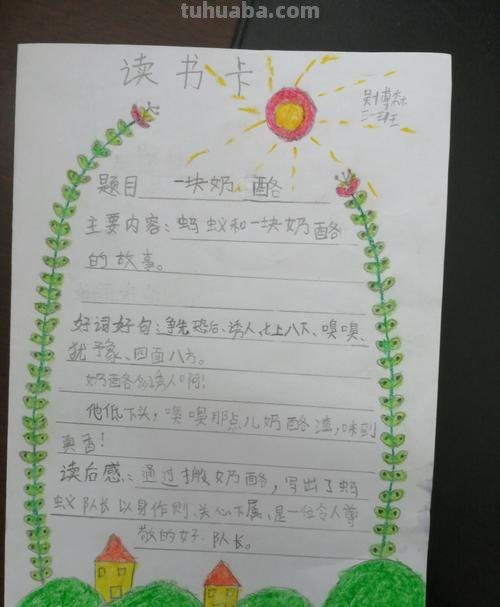 tuhuaba.com
读书卡
三一班
题目 一块奶酪
主要内容:蚂蚁和一块奶酪
的故事。
好词好句:争先恐后、诱人、七上八下、嗅嗅、
犹予豫、四面八方。
奶酪多诱人啊!
他低下头,嗅嗅那点儿奶酪渣,味到
真香!
读后感:通过搬奶酪,写出了蚂
蚁队长以身作则、关心下属,是一位令人尊
敬的好队长。